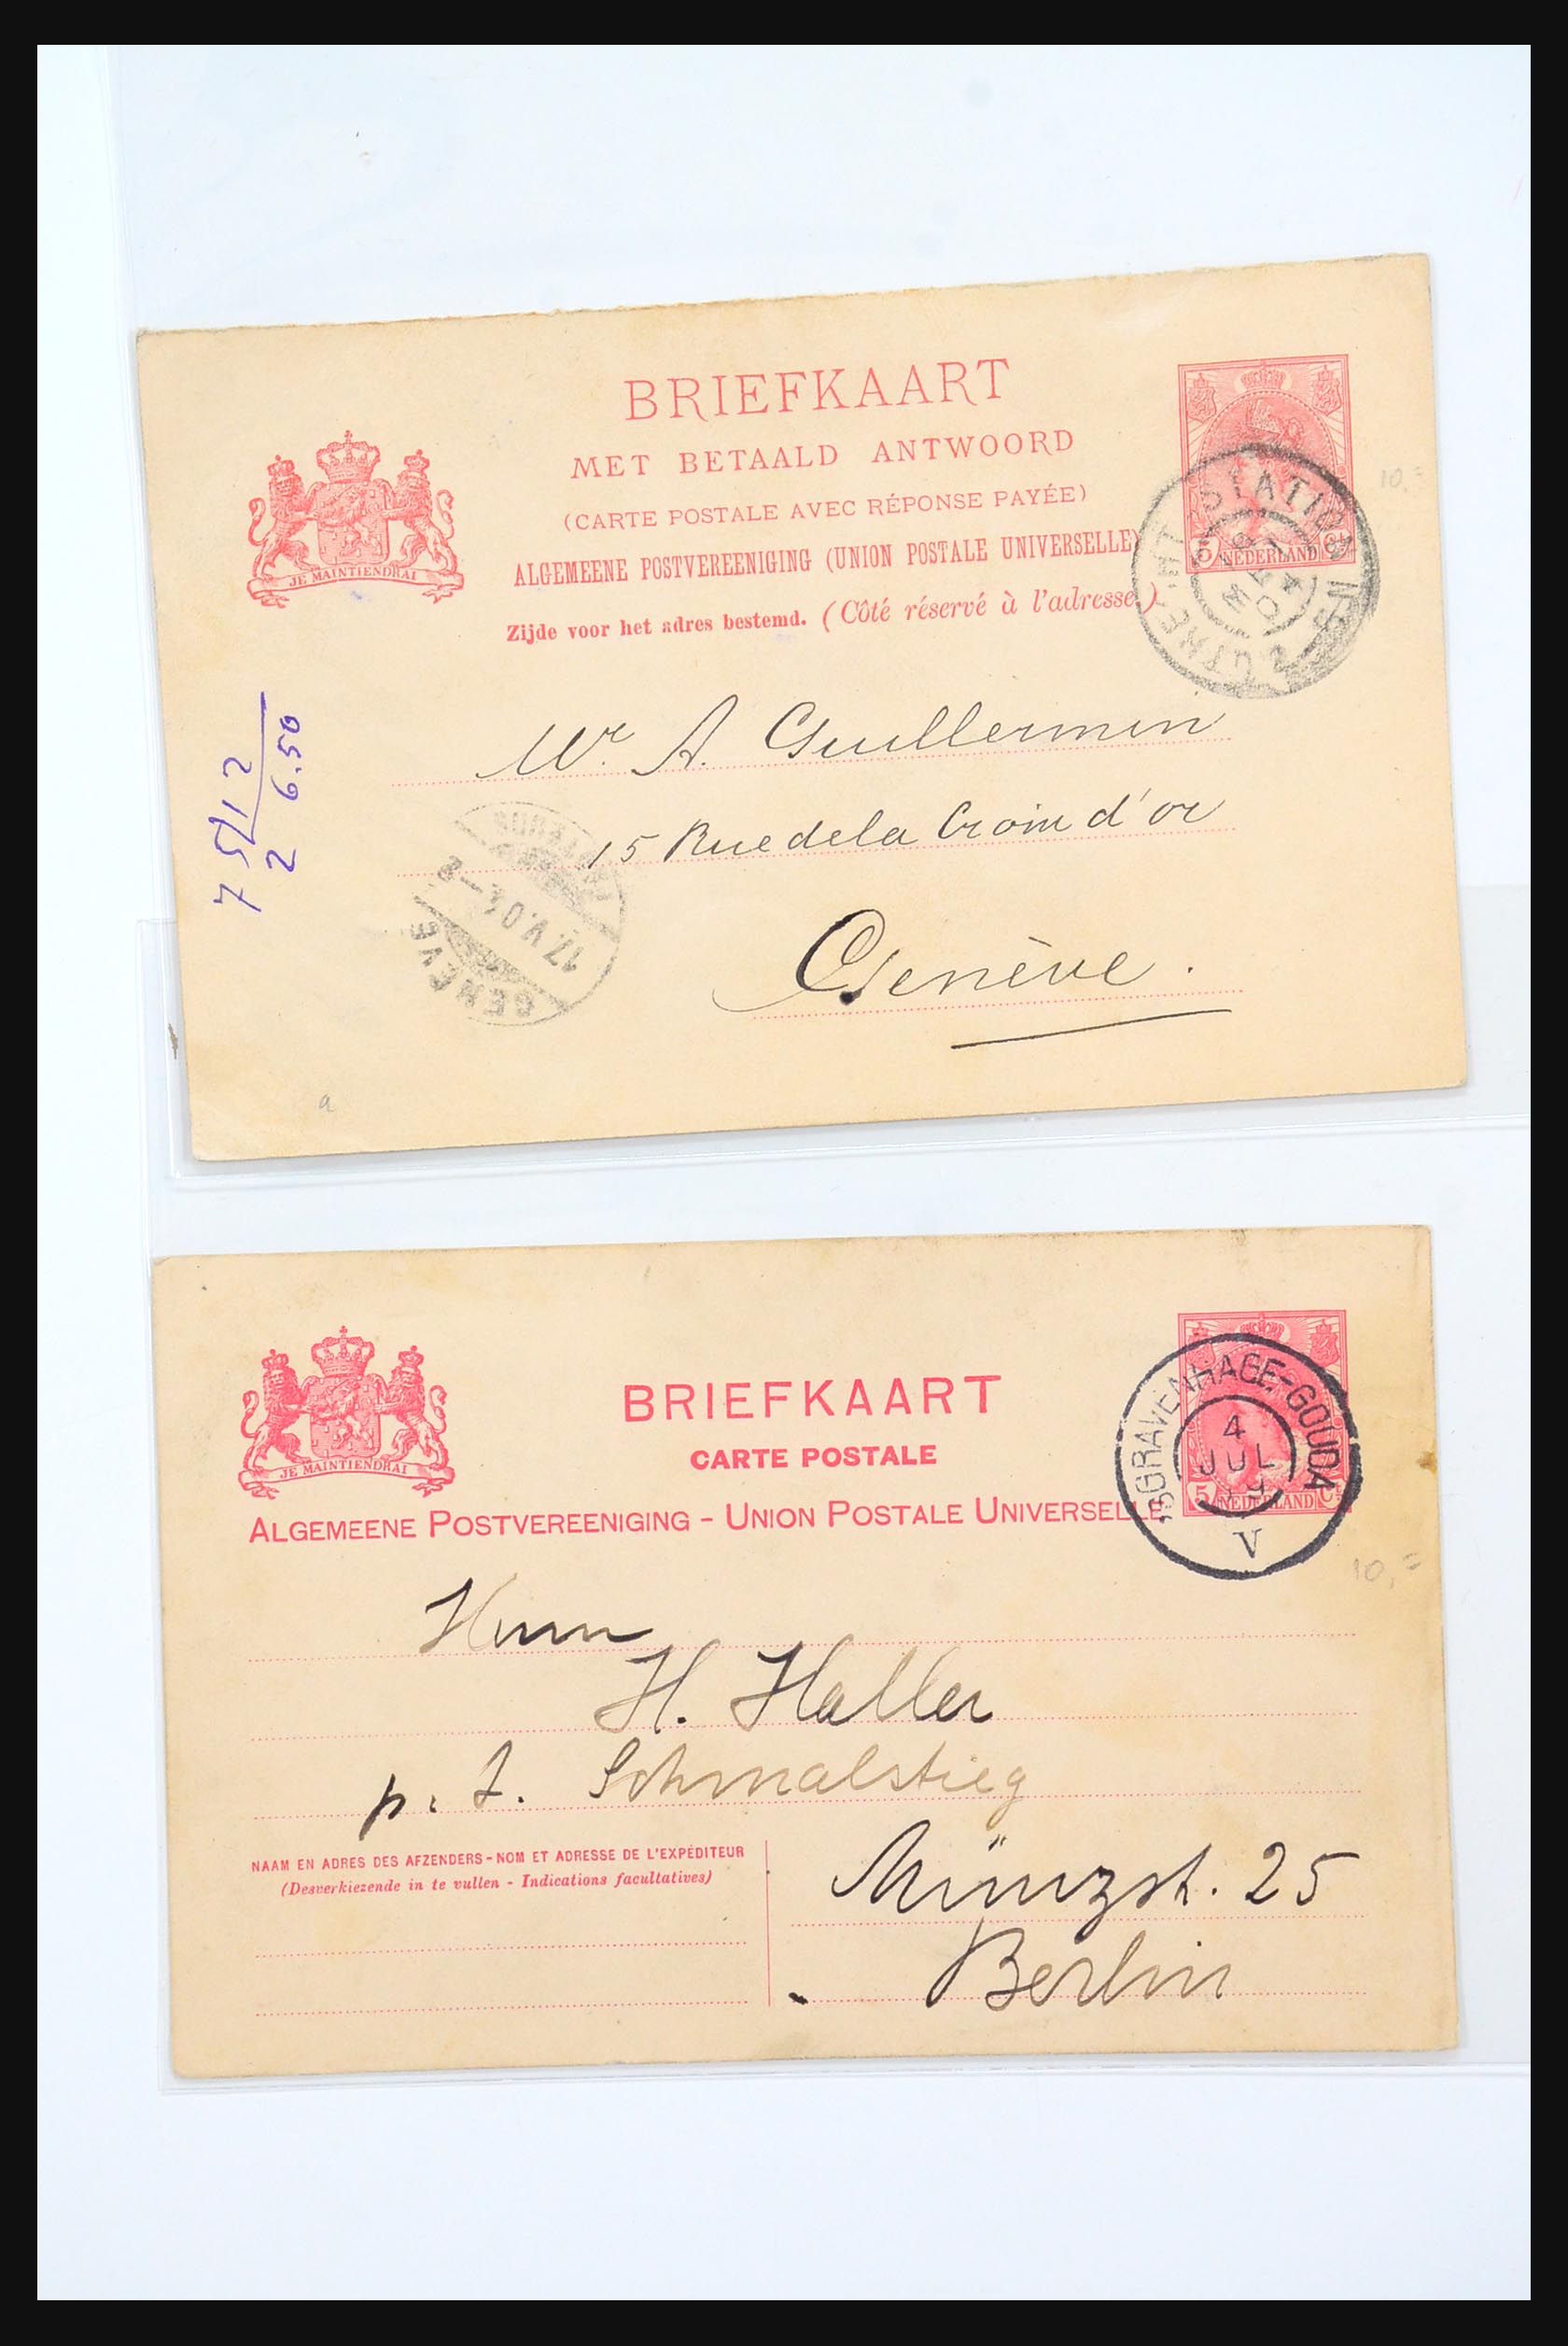 BRIEFKAART
MET BETAALD ANTWOORD
(CARTE POSTALE AVEC RÉPONSE PAYÉE)
ALGEMEENE POSTVEREENIGING (UNION POSTALE UNIVERSELLE)
Zijde voor het adres bestemd. (Côté réservé à l'adresse.)
JE MAINTIENDRAI
5 NEDERLAND Ct
STATION
10,=
75/12
26.50
Mr. A. Guillermin
15 Rue de la Croix d'or
Genève.
GENÈVE
17.V.0
a
BRIEFKAART
CARTE POSTALE
ALGEMEENE POSTVEREENIGING - UNION POSTALE UNIVERSELLE
JE MAINTIENDRAI
5 NEDERLAND Ct
'SGRAVENHAGE-GOUDA
4
JUL
V
10,=
Herrn
H. Haller
p. J. Schmalstieg
Münzst. 25
Berlin
NAAM EN ADRES DES AFZENDERS - NOM ET ADRESSE DE L'EXPÉDITEUR
(Desverkiezende in te vullen - Indications facultatives)